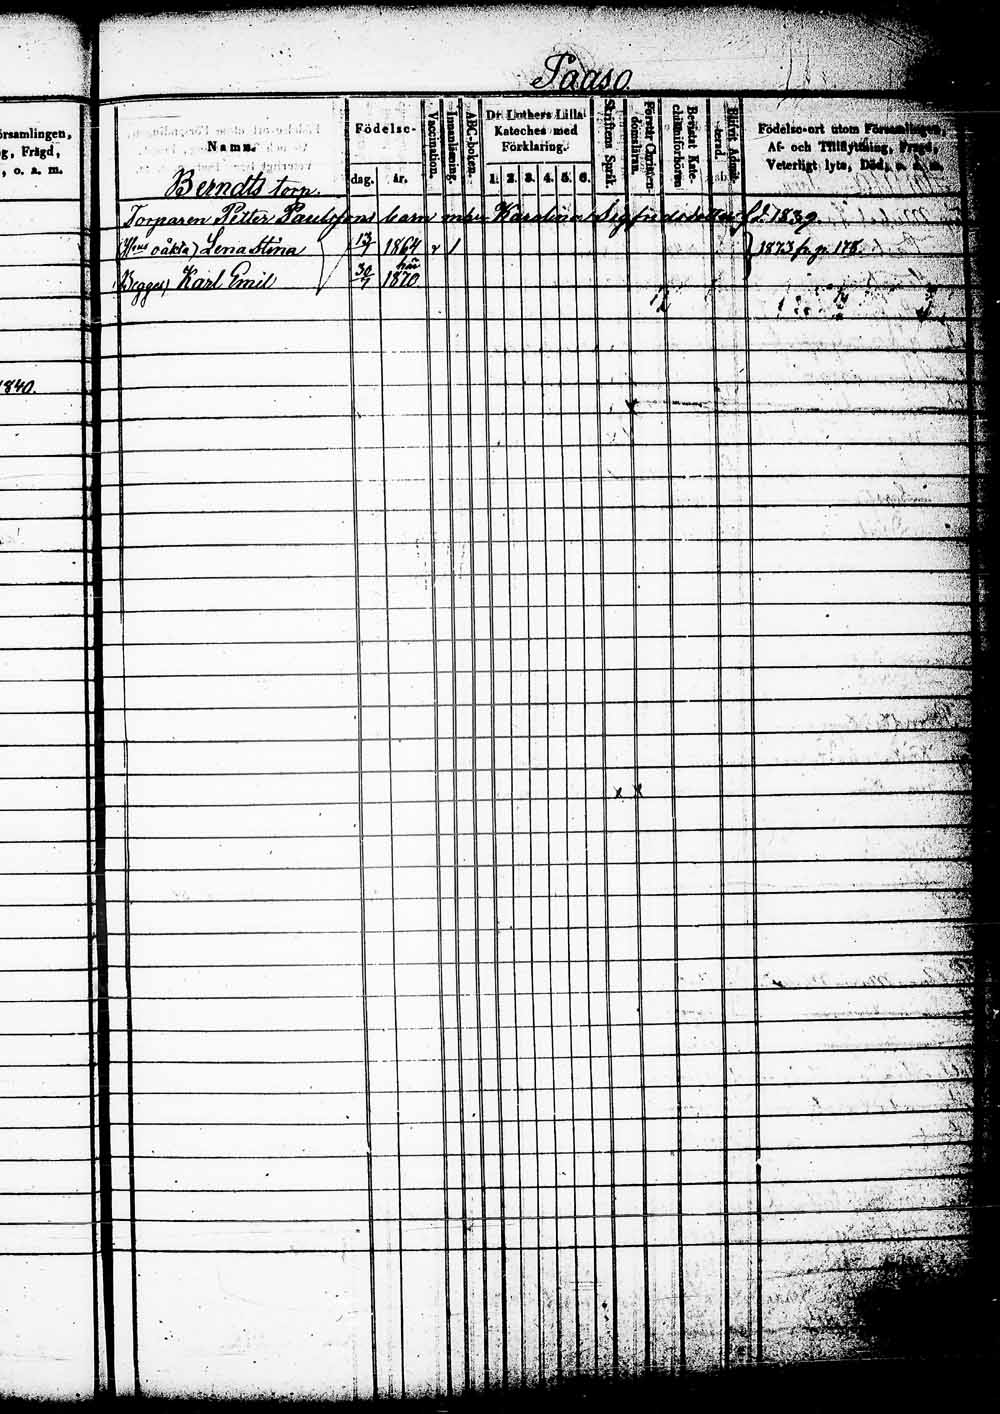 Paaso.
örsamlingen,
g, Frägd,
, o. a. m.
1840.
Namn.
Födelse-
dag.
år.
Vaccination.
Innanläsning.
ABC-boken.
Dr. Luthers Lilla
Kateches med
Förklaring.
1. 2. 3. 4. 5. 6.
Skriftens Språk.
Förstår Christen-
domsläran.
Bevistat Kate-
chismiförhören
Blifvit Admit-
terad.
Födelse-ort utom Församlingen,
Af- och Tillflyttning, Frägd,
Veterligt lyte, Död, o. a. m.
Berndts torp.
Torparen Petter Paulssons barn m. Karolina Sigfridsdotter f. 1839
oäkta) Lena Stina 13/7 1864 v 1 1873 p. 178.
här
Karl Emil 30/7 1870